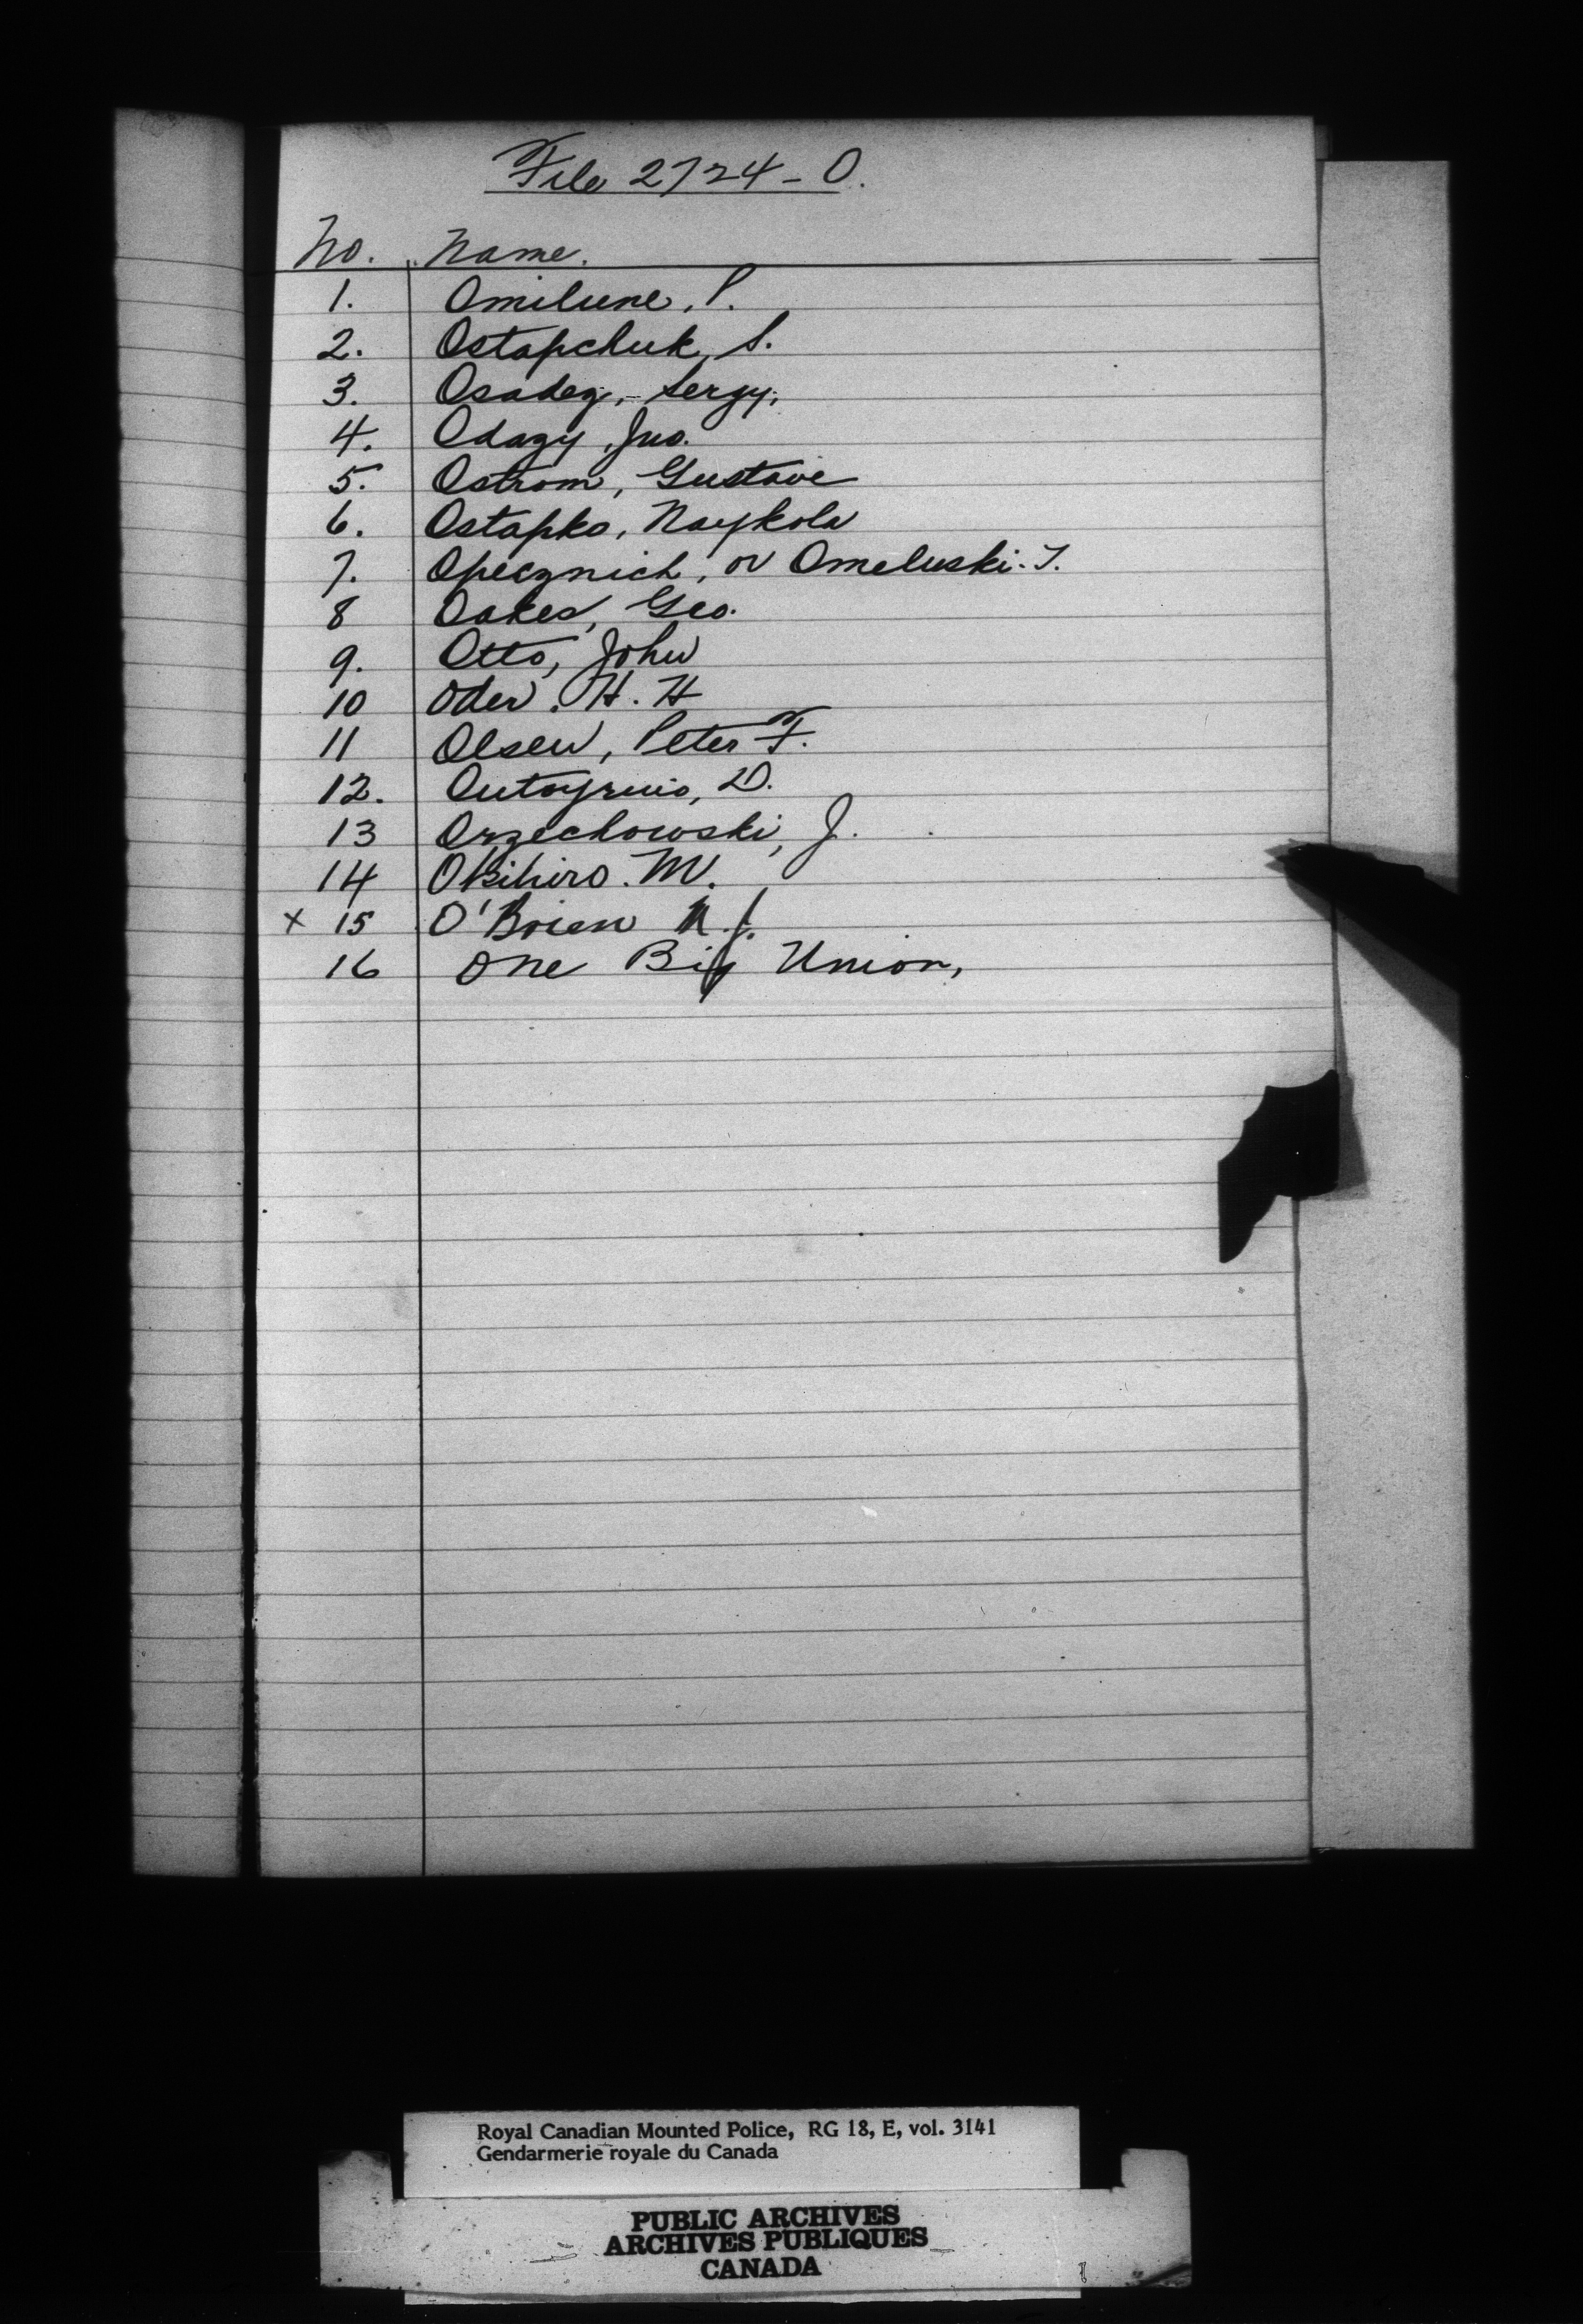 File 2724-O.
No. Name.
1. Omilune, P.
2. Ostapchuk, S.
3. Osadez, - Sergy,
4. Odazy, Jno.
5. Ostrom, Gustave
6. Ostapko, Naykola
7. Opecznich, or Omeluski. T.
8 Oakes, Geo.
9. Otto, John
10 Oder. H. H
11 Olsen, Peter F.
12. D.
13 Orzechowski, J.
14 Okihiro. M.
x 15 O'Brien J.
16 One Big Union,
Royal Canadian Mounted Police, RG 18, E, vol. 3141
Gendarmerie royale du Canada
PUBLIC ARCHIVES
ARCHIVES PUBLIQUES
CANADA